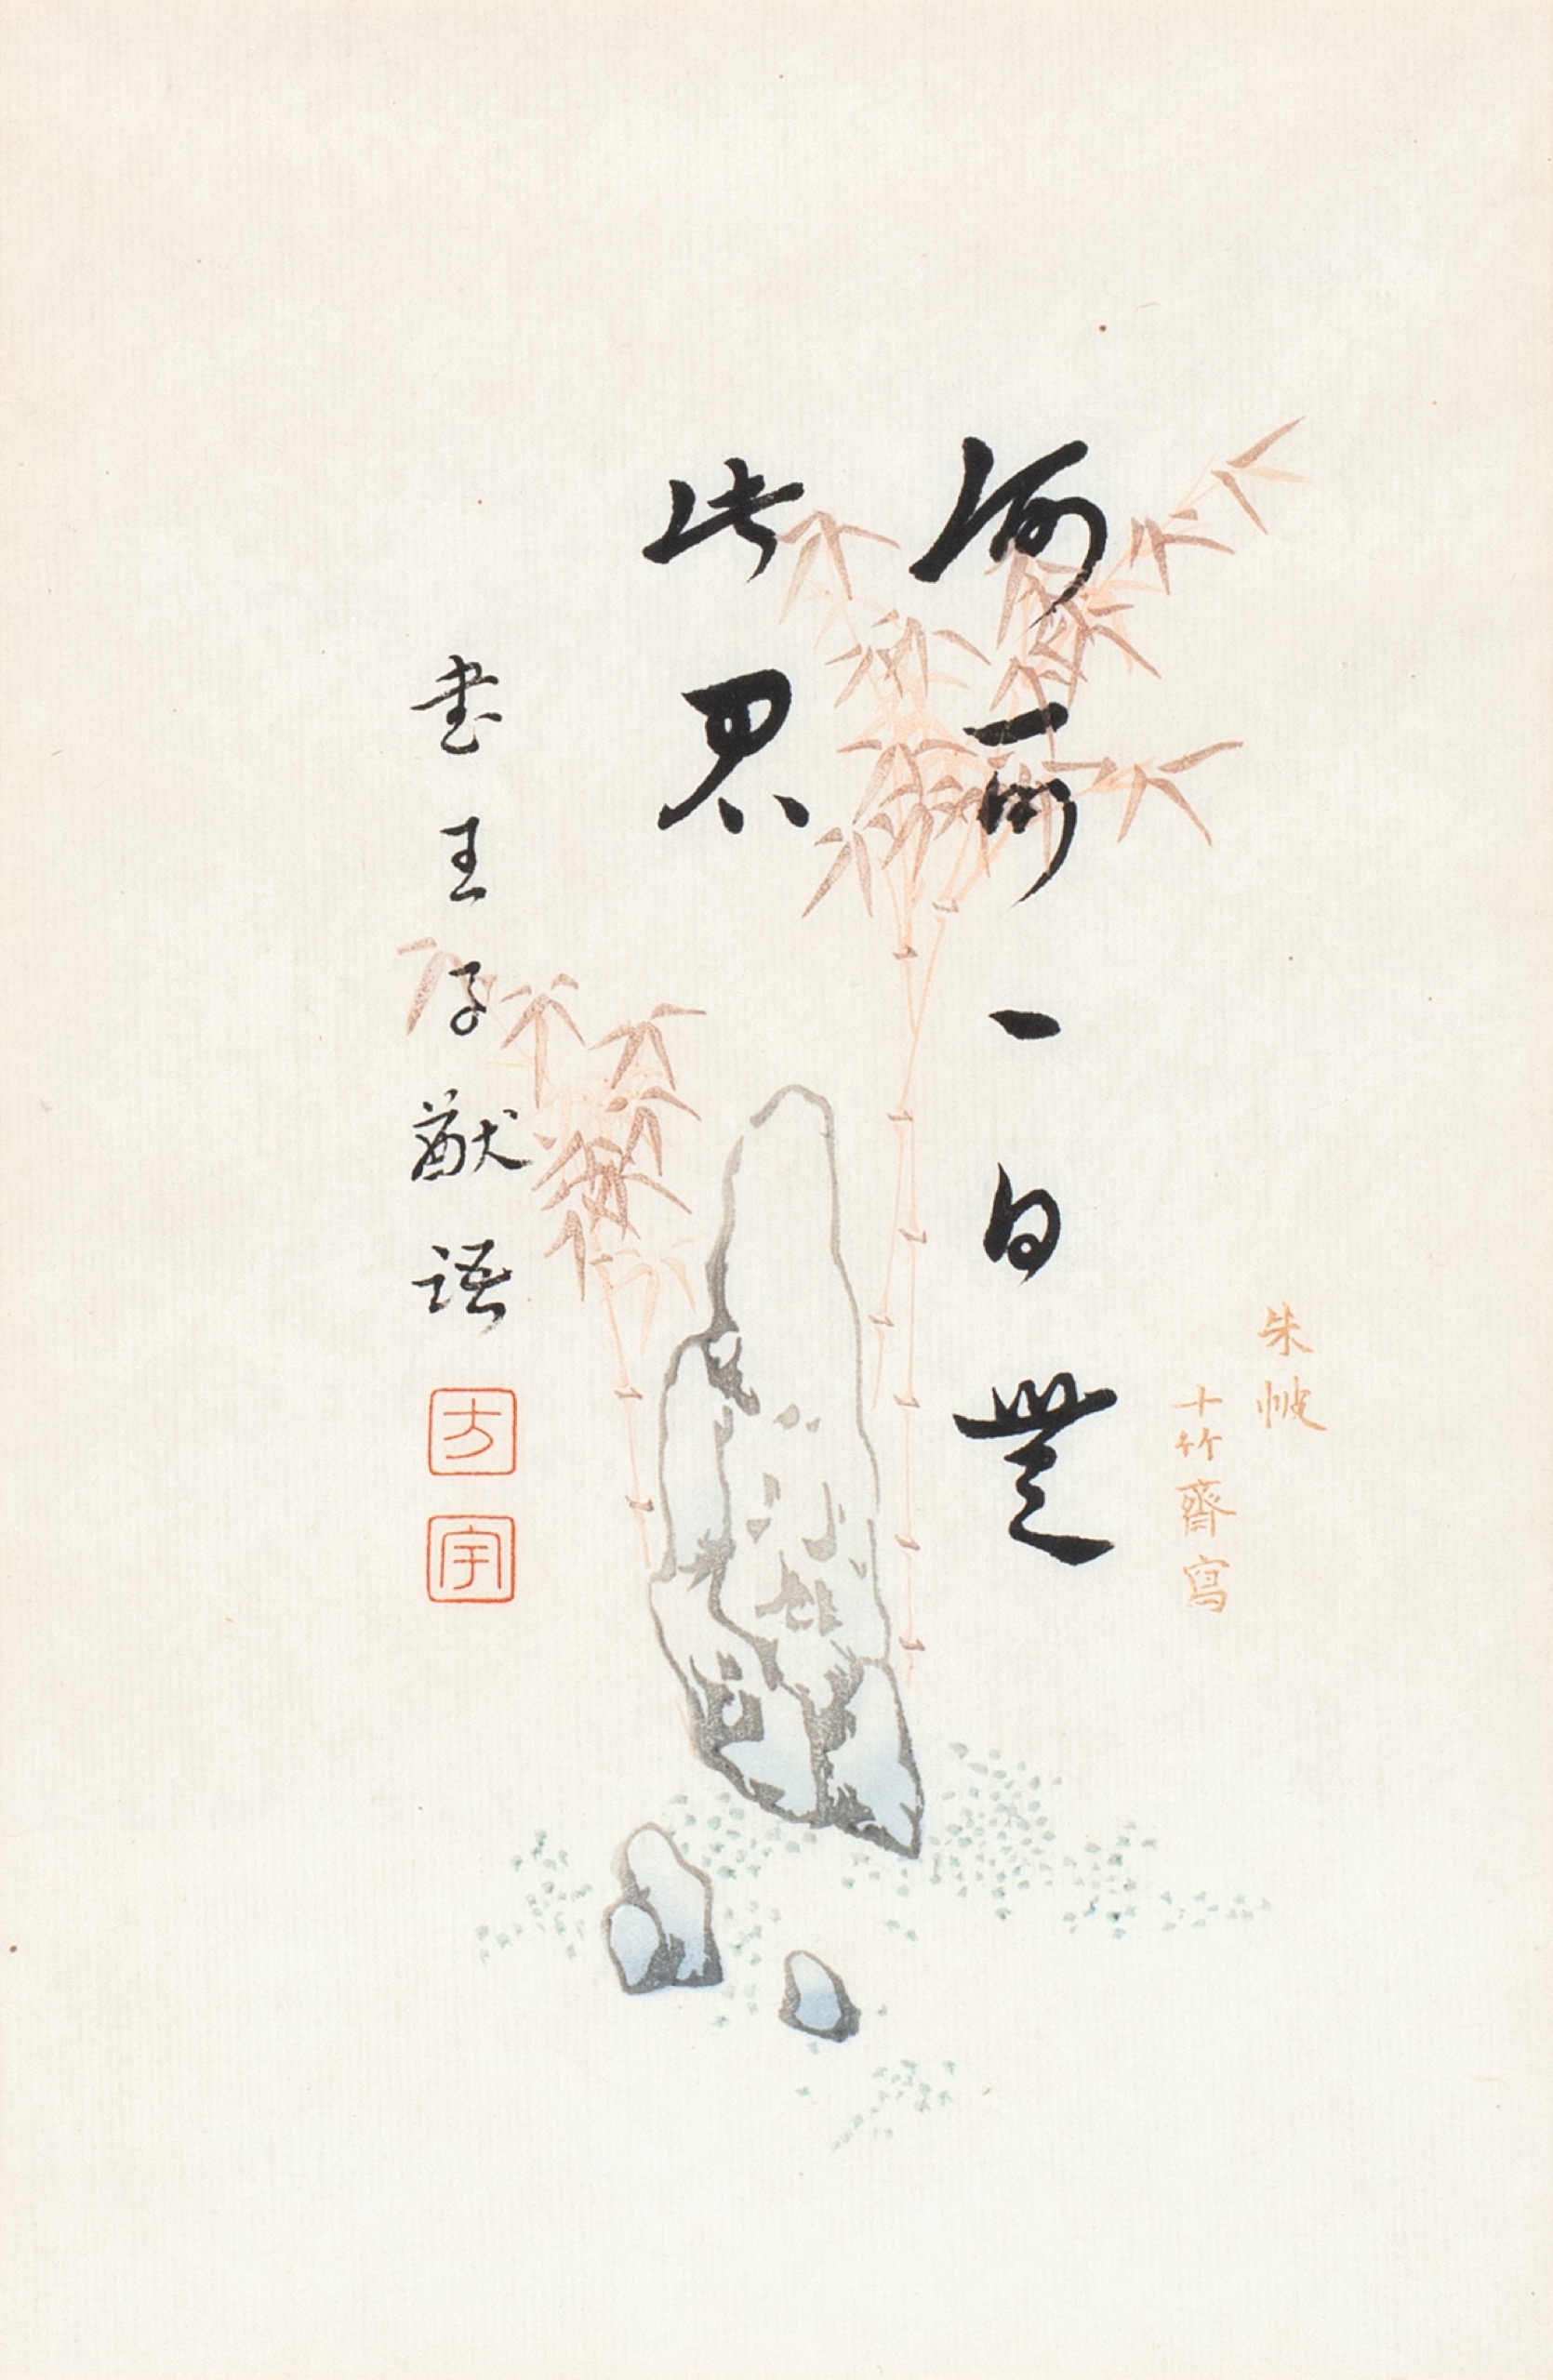 何可一日無
此君
書王子猷語
方
宇
朱帔
十竹齋寫